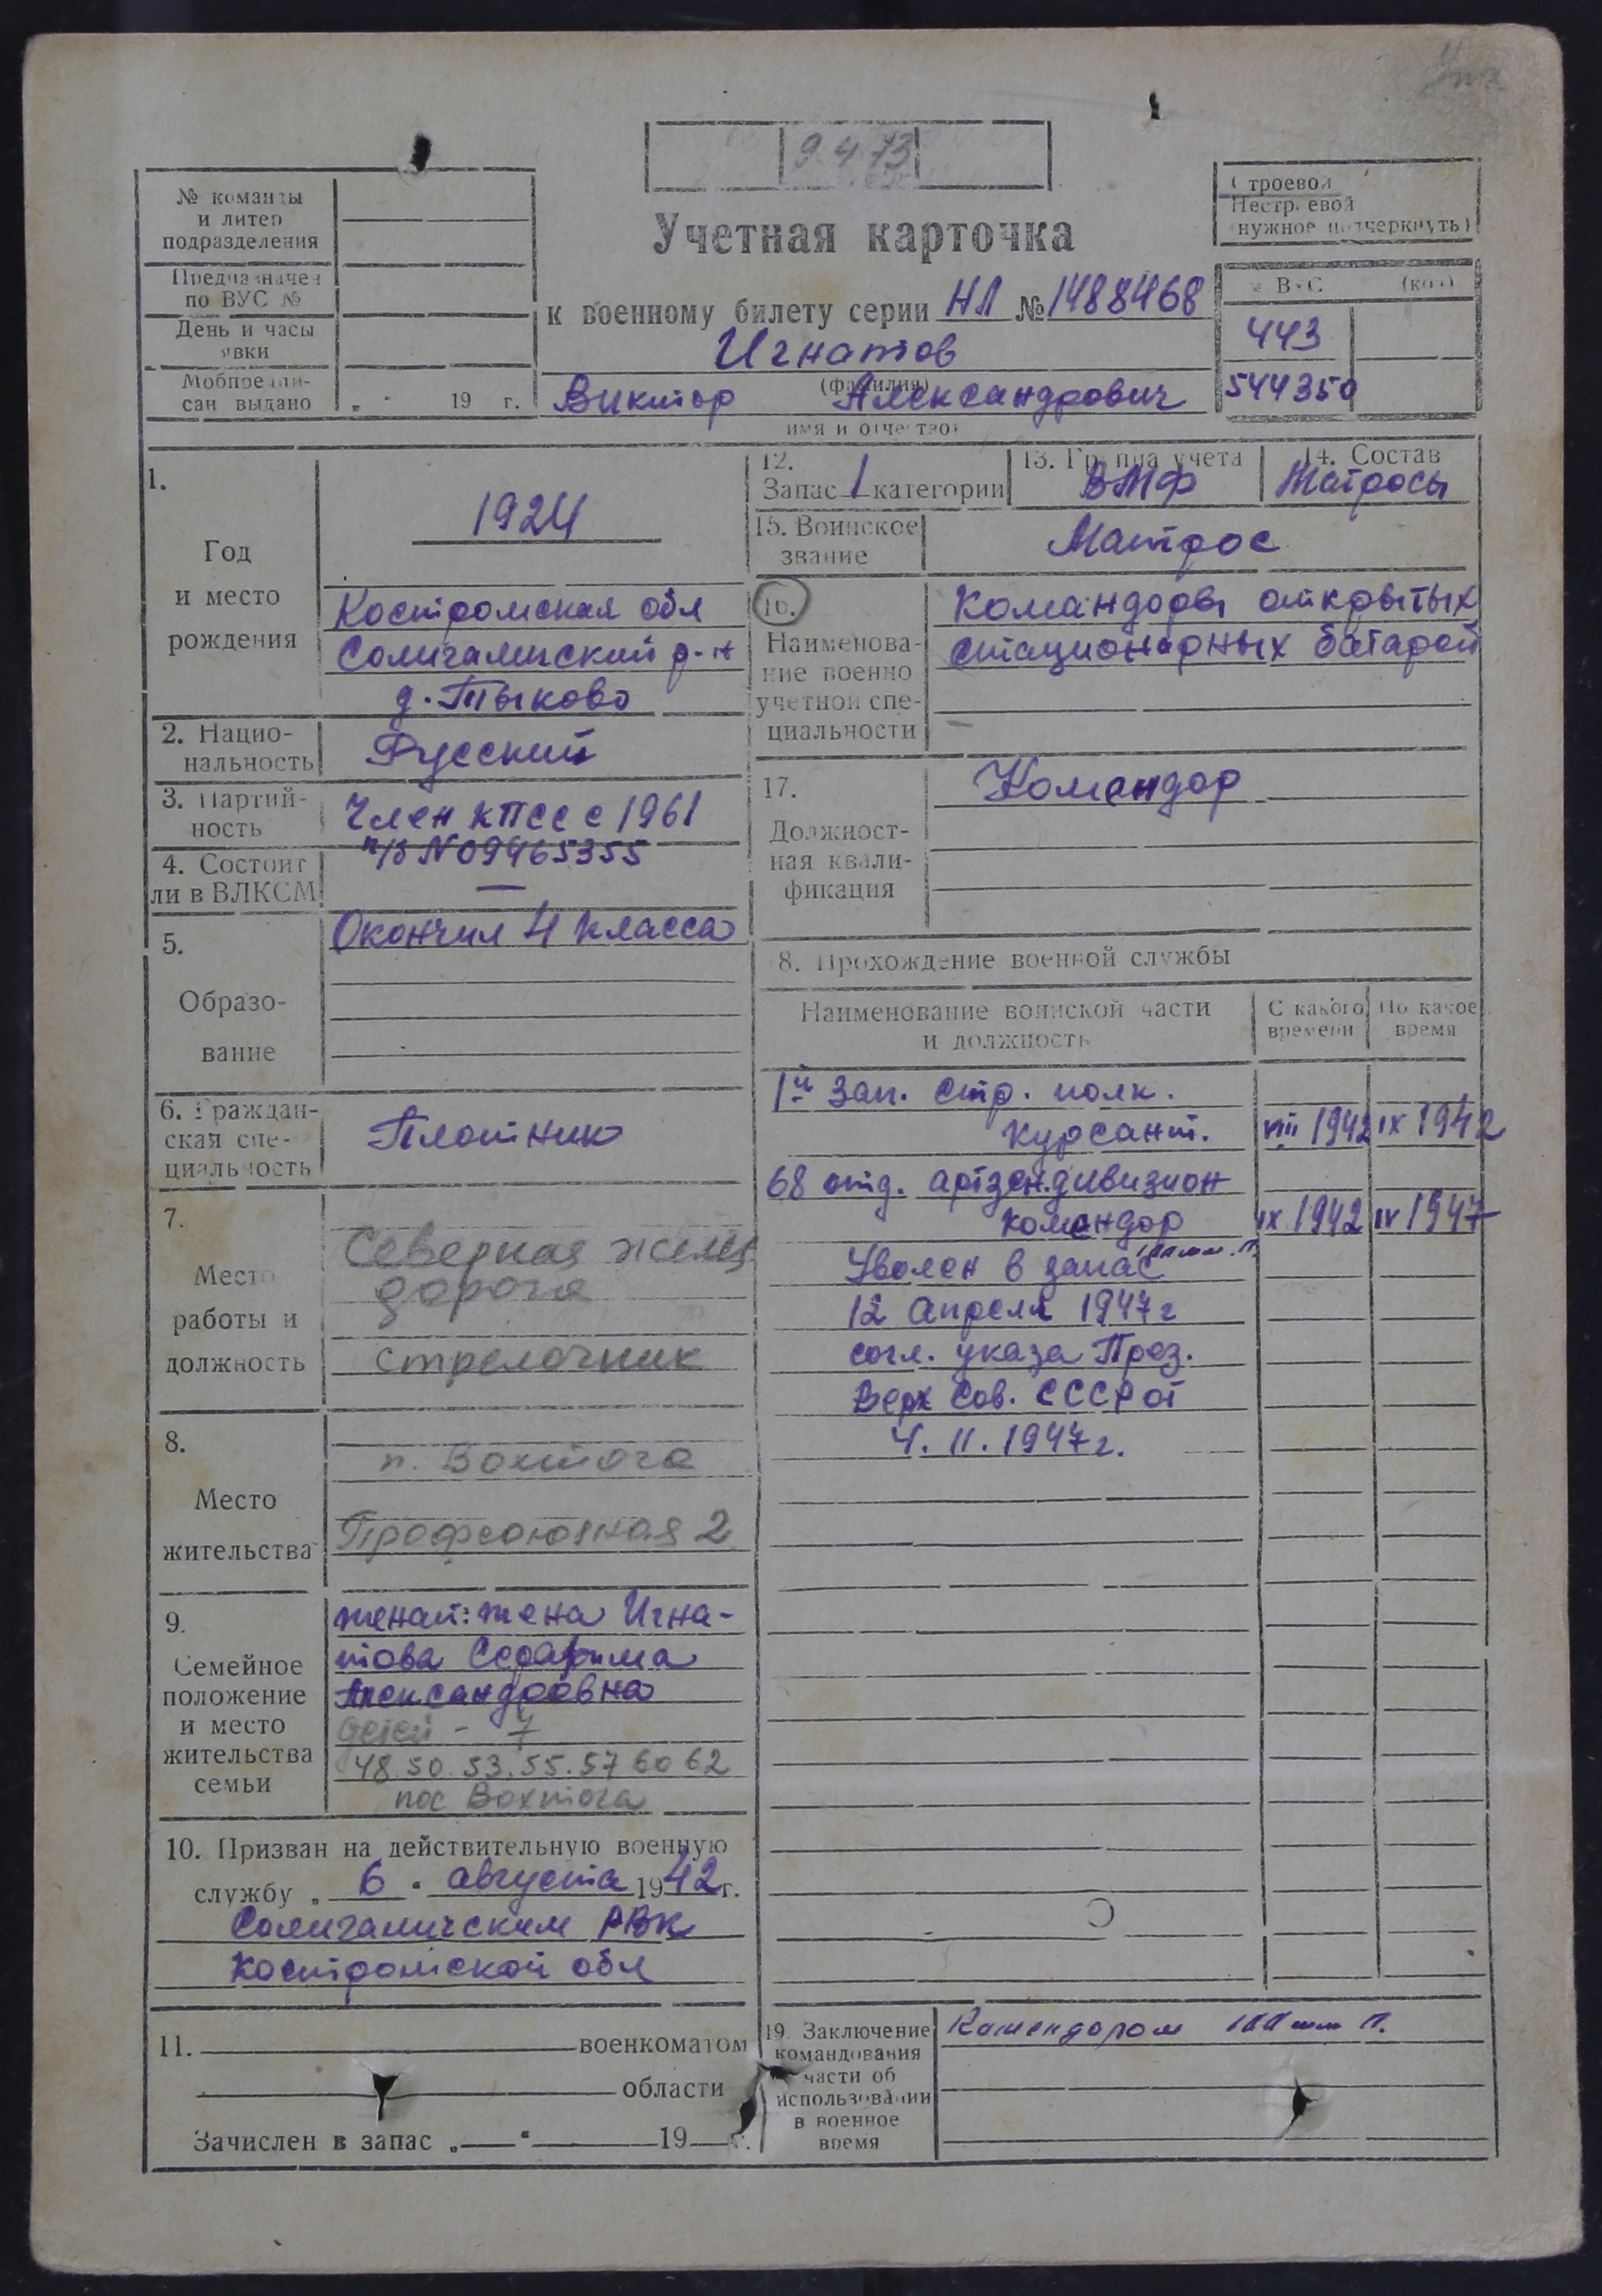 9.4.73
№ команды
и литер
подразделения
Предназначен
по ВУС №
День и часы
явки
Мобпредпи-
сан выдано „ “ 19 г.
Учетная карточка
к военному билету серии НЛ № 1488468
Игнатов
(фамилия)
Виктор Александрович
имя и отчество)
Строевой
Нестроевой
(нужное подчеркнуть)
ВУС (код)
443
544350
1.
Год
и место
рождения
1924
Костромская обл
Солигаличский р-н
д. Тыково
2. Нацио-
нальность
Русский
3. Партий-
ность
Член КПСС с 1961
п/б N 09465355
4. Состоит
ли в ВЛКСМ
—
5.
Образо-
вание
Окончил 4 класса
6. Граждан-
ская спе-
циальность
Плотник
7.
Место
работы и
должность
Северная желез
дорога
стрелочник
8.
Место
жительства
п. Вохтога
Профсоюзная 2
9.
Семейное
положение
и место
жительства
семьи
женат: жена Игна-
това Серафима
Александровна
детей - 7
48. 50. 53. 55. 57 60 62
пос Вохтога
10. Призван на действительную военную
службу „ 6 “ августа 1942 г.
Солигаличским РВК
Костромской обл
11. военкоматом
области
Зачислен в запас „ “ 19 г.
12.
Запас 1 категории
13. Группа учета
ВМФ
14. Состав
Матросы
15. Воинское
звание
Матрос
16.
Наименова-
ние военно
учетной спе-
циальности
Командоры открытых
стационарных батарей
17.
Должност-
ная квали-
фикация
Командор
8. Прохождение военной службы
Наименование воинской части
и должность
С какого
времени
По какое
время
1й зап. стр. полк.
курсант. VIII 1942 IX 1942
68 отд. артзен.дивизион
командор IX 1942 IV 1947
Уволен в запас
12 апреля 1947 г
согл. указа През.
Верх Сов. СССР от
4. II. 1947 г.
19. Заключение
командования
части об
использовании
в военное
время
Комендором 100 мм п.